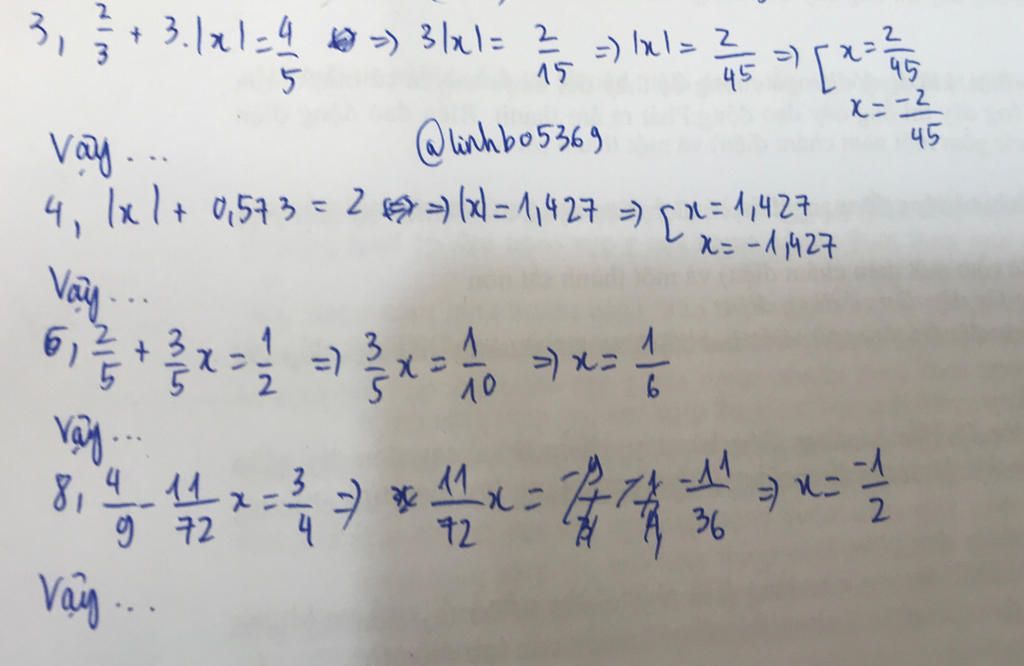 3, 2/3 + 3.|x| = 4/5 => 3|x| = 2/15 => |x| = 2/45 => [ x = 2/45
x = -2/45
Vậy ...
@linhb05369
4, |x| + 0,573 = 2 => |x| = 1,427 => [ x = 1,427
x = -1,427
Vậy ...
6, 2/5 + 3/5 x = 1/2 => 3/5 x = 1/10 => x = 1/6
Vậy ...
8, 4/9 - 11/72 x = 3/4 => 11/72 x = -11/36 => x = -1/2
Vậy ...